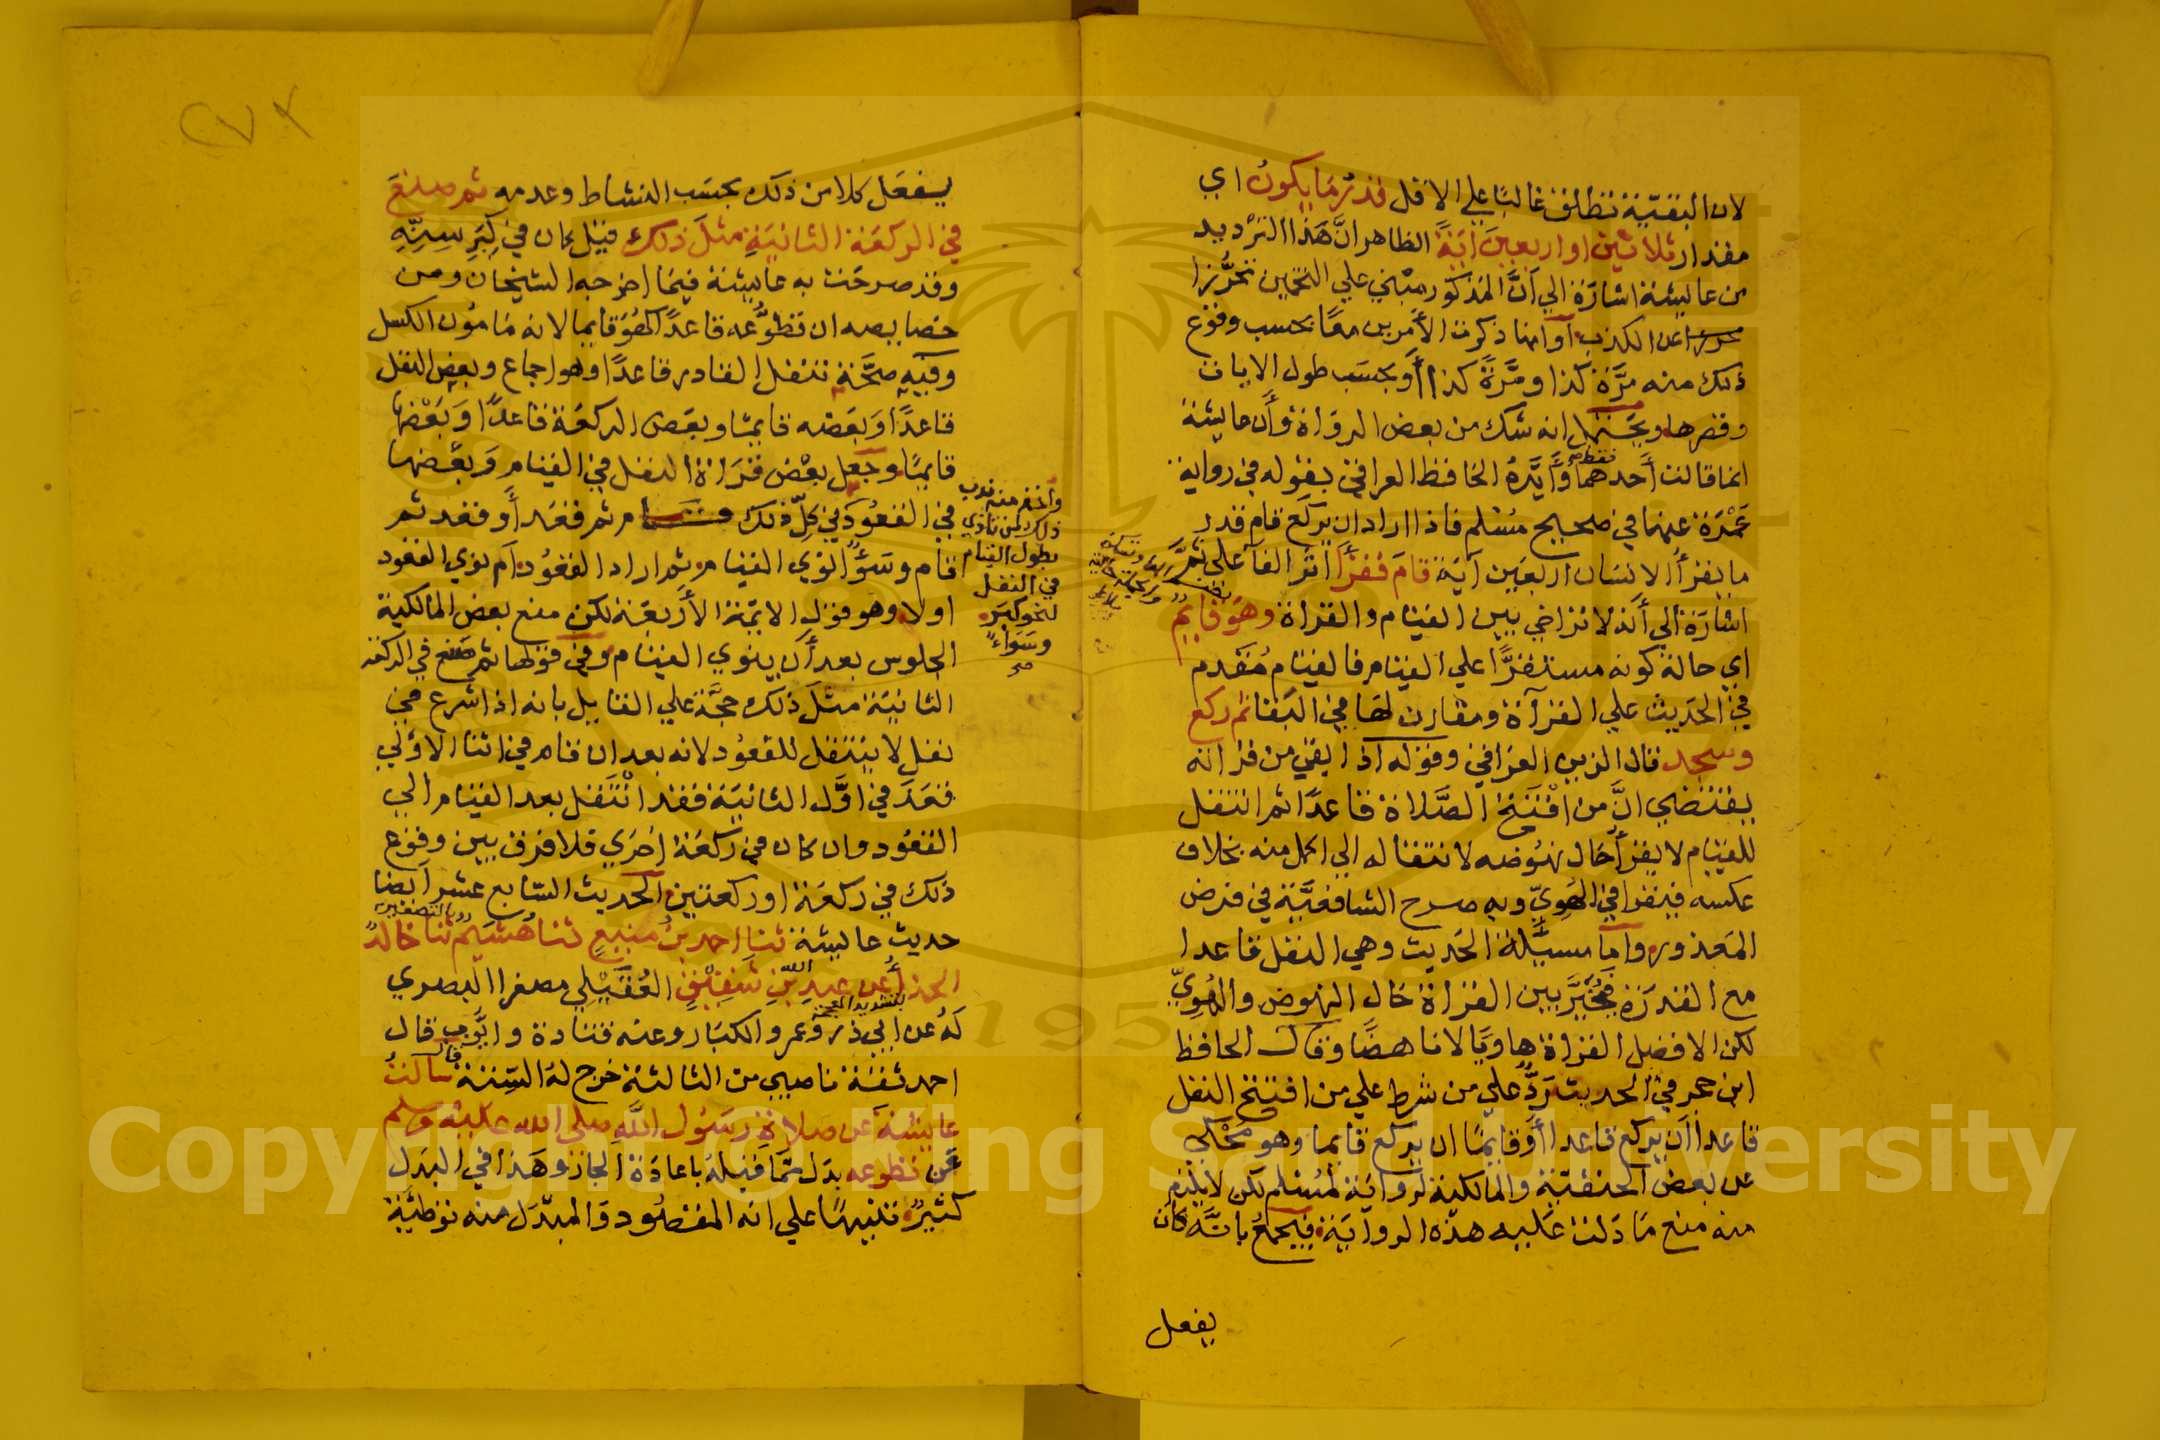 لان البقية تطلق غالبا علي الاقل قدر ما يكون اي
مقدار ثلاثين او اربعين اية الظاهر انّ هذا الترديد
من عايشة اشارة الي انّ المذكور مبني علي التخمين تحرّزا
عن الكذب او انها ذكرت الأمرين معًا بحسب وقوع
ذلك منه مرّة كذا ومرّة كذا أو بحسب طول الايات
وقصرها ويحتمل انه شك من بعض الرواة وأن عايشة
انما قالت أحدهما فقط وأيّده الحافظ العراقي بقوله في رواية
عَمْرَة عنها في صحيح مسلم فاذا اراد ان يركع قام قدر
ما يقرأ الانسان اربعين آية قام فقرأ اثر الفا على ثم
اشارة الي أنه لا تراخي بين القيام والقراة وهو قايم
اي حالة كونه مستقرًّا علي القيام فالقيام مُقَدم
في الحديث علي القرآة ومقارن لها في البقا ثم ركع
وسجد قال الزين العراقي وقوله اذا بقي من قراته
يقتضي انّ من افتتح الصّلاة قاعدًا ثم انتقل
للقيام لا يقرأ حال نهوضه لانتقاله الي اكمل منه بخلاف
عكسه فيقرا في الهَوِيّ وبه صرح الشافعيّة في فرض
المعذور واما مسيلة الحديث وهي النفل قاعدا
مع القدرة فمُخيّر بين القراة حَال النهوض والهُوِيّ
لكن الافضل القراة هاويًا لا ناهضًا وقال الحافظ
ابن حجر في الحديث رَدّ علي من شرط علي من افتتح النفل
قاعدا أن يركع قاعدا أو قايمًا ان يركع قايما وهو محكي
عن بعض الحنفيّة والمالكية لرواية لمُسْلم لكن لا يلزم
منه منع مَا دَلت عَليه هذه الرواية فيجمع بانّه كان
يفعل
يفعل كلا من ذلك بحسب النشاط وعدمه ثم صنع
في الركعة الثانية مثل ذلك قيل كان في كِبَرِ سِنِّهِ
وقد صرحت به عايشة فيما اخرجه الشيخان ومن
خصايصه ان تطوّعه قاعدًا كهُوَ قايما لانه مَامون الكسل
وفيه صحّة تنفل القادر قاعدًا وهو اجماع وبعض النفل
قاعدًا وَبَعضه قايمًا وبعض الركعة قاعدًا وَبَعْضها
قايمًا وجَعل بعْض قرَاة النفل في القيام وَبعْضها
في القعُود في كلّ ذلك قام ثم قعَد أو قعد ثم
قام وسَوَاءً نوي القيام ثم اراد القعُود أم نوي القعود
اولا وهو قول الايمّة الأربعَة لكن منع بعض المالكية
الجلوس بعد أن ينوي القيام وفي قولها ثم صنع في الركعة
الثانية مثل ذلك حجّة علي القايل بانه اذا شرع في
نفل لا ينتقل للقعُود لانه بعد ان قام في اثنا الاولي
قعَدَ في اوّل الثانيَة فقد انتَقل بعد القيام الي
القعُود وان كان في ركعَة اخرَي فلا فرق بين وقوع
ذلك في ركعَة او ركعتين الحديث السّابع عشر ايضا
حديث عايشة ثنا احمد بنُ منيع ثنا هُشَيم بالتصغير ثنا خالدٌ
الحذا بتشديد المعجمة عن عبد الله بن شقيْق العُقَيْلي مصغرا البصري
لَهُ عن ابي ذر وعمر والكبَار وعنه قتادة وايّوب قال
احمد ثقة ناصبي من الثالثة خرج له السّتة قال سالتُ
عايشة عَن صلاة رَسُول اللّه صلي الله عليه وسلم
عَن تطوعه بَدل ممّا قبله باعادة الجار وهَذا في البدَل
كثيرٌ تنبيهًا علي انه المقصُود والمبدَل منه توطئَة
وأخذ منه ندب
ذلك لمن تاذي
بطول القيام
في النفل
لنحو كبَر
وسَوَاءً
صح